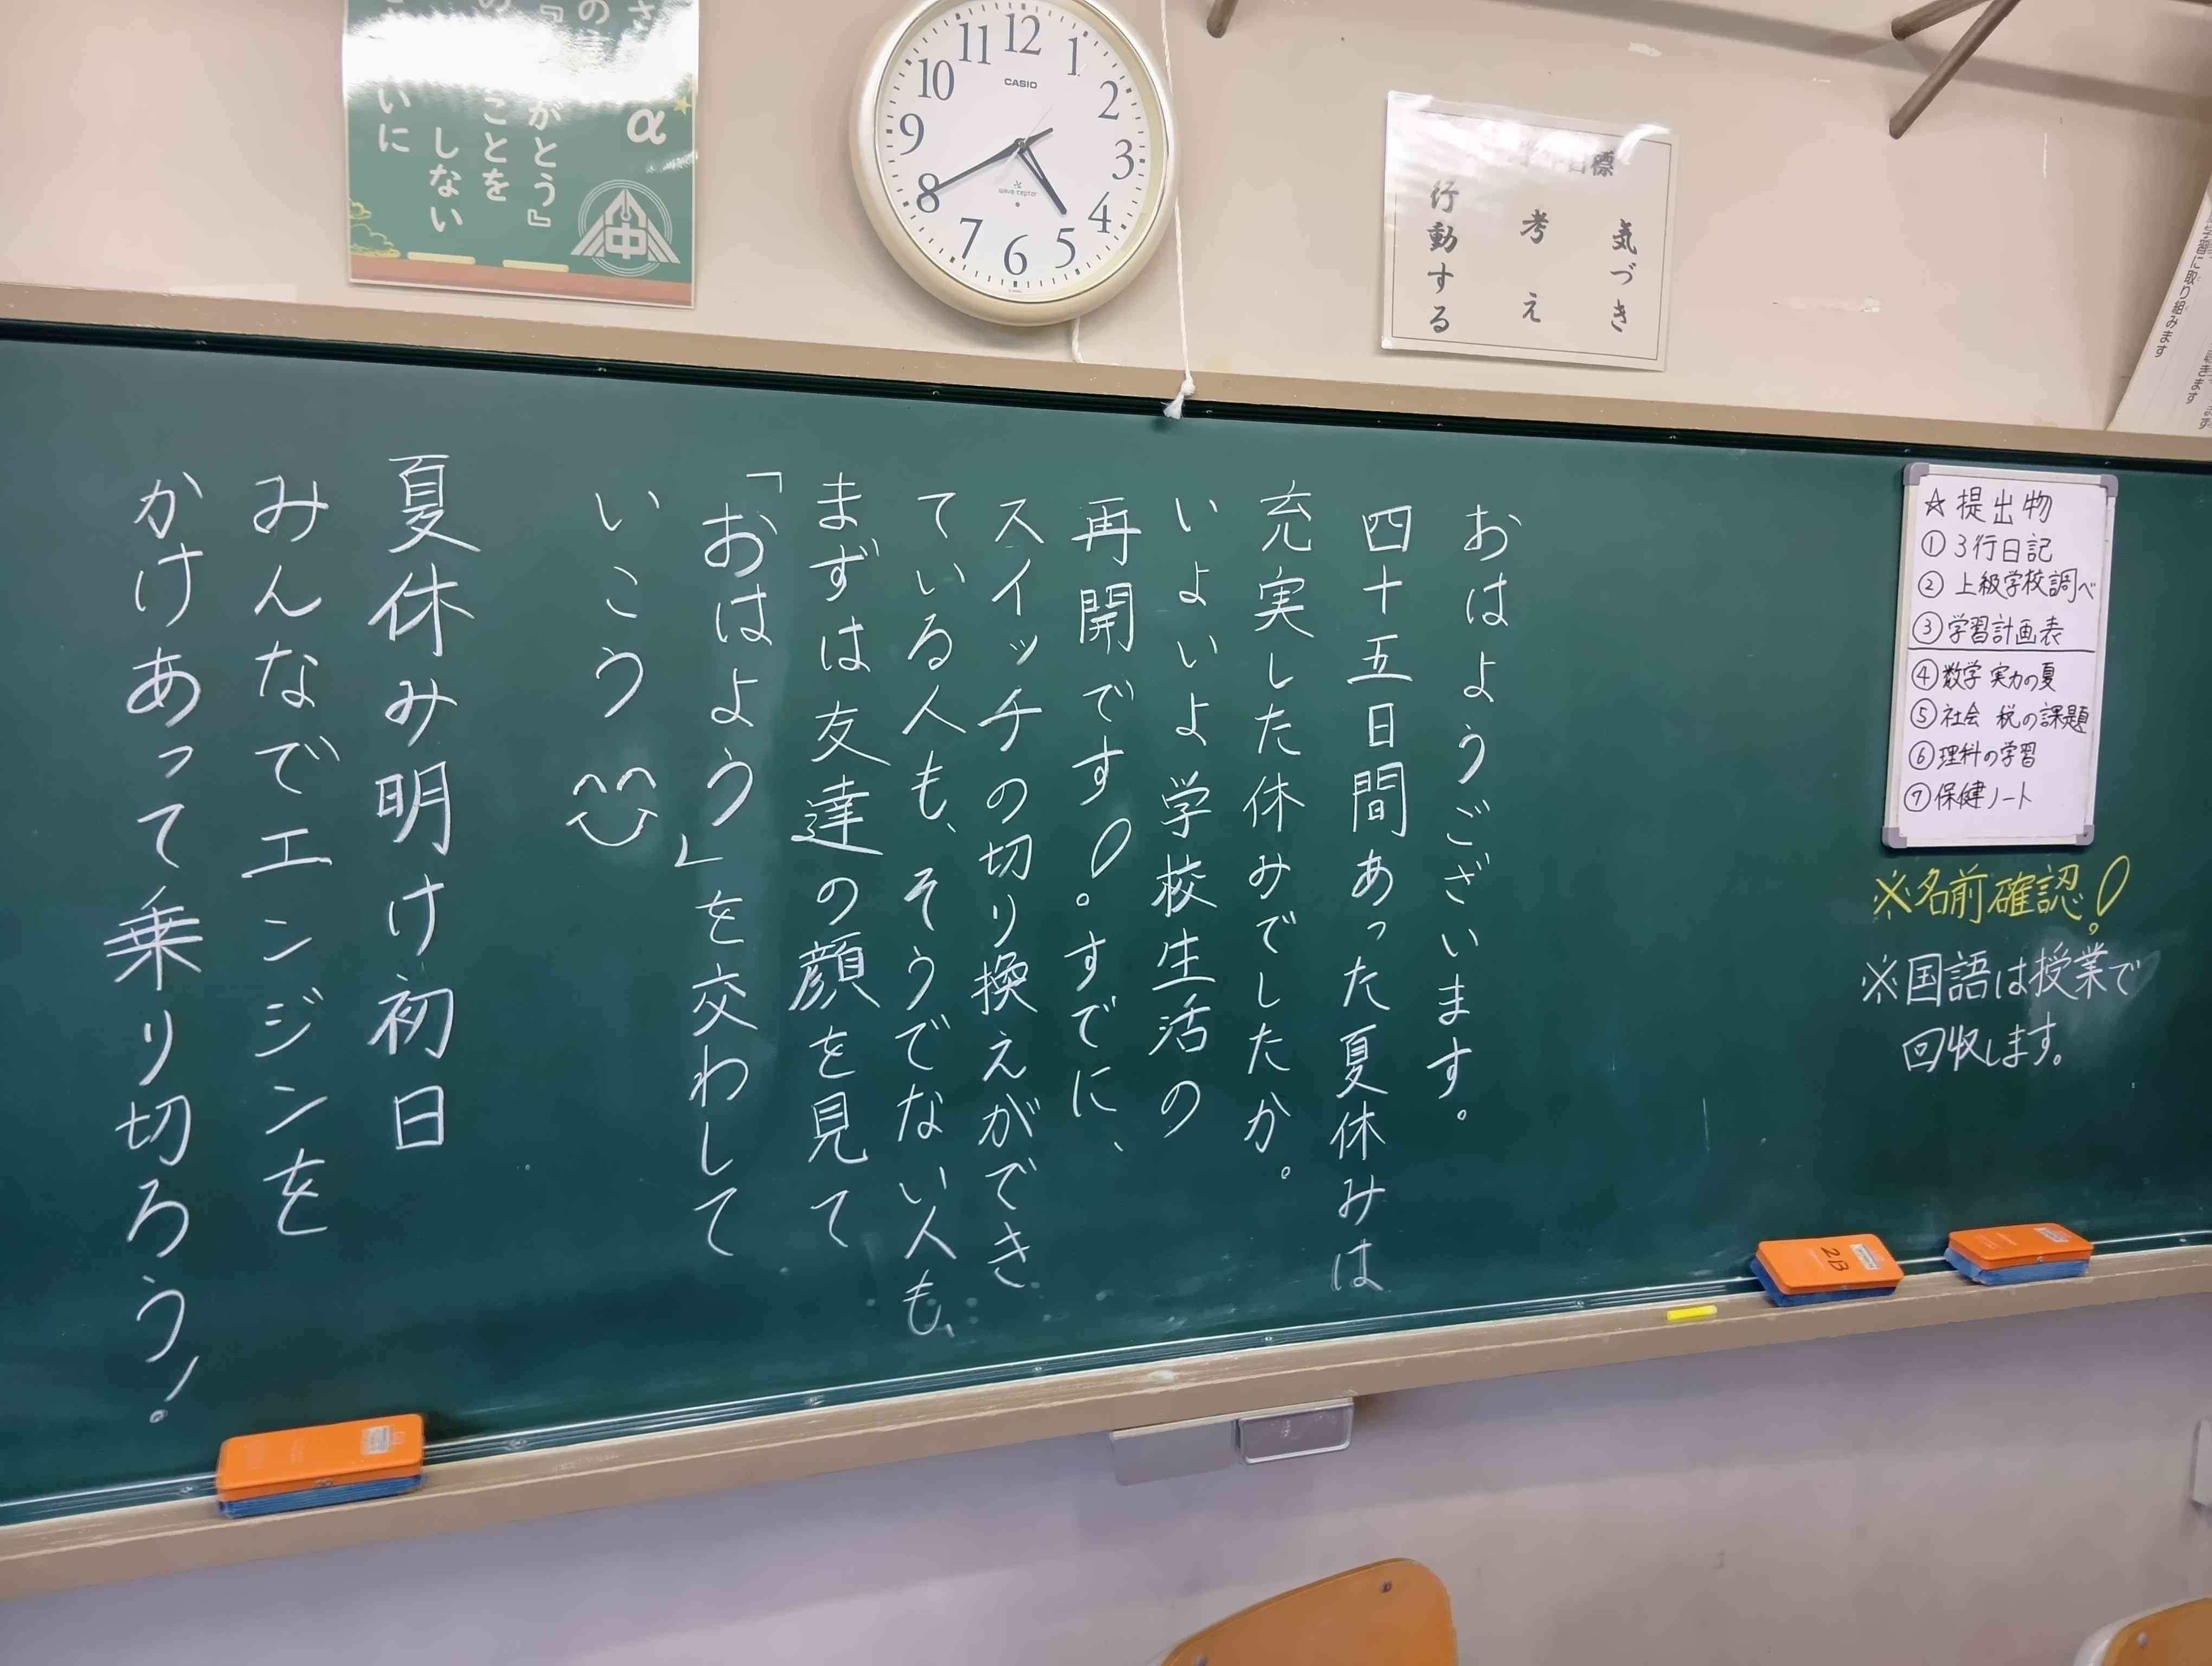 さ
の
『 がとう』
の ことを
しない
いに
α
中
12
1
2
3
4
5
6
7
8
9
10
11
CASIO
wave ceptor
目標
気づき
考え
行動する
学習に取り組みます
きます
ます
おはようございます。
四十五日間あった夏休みは
充実した休みでしたか。
いよいよ学校生活の
再開です!すでに、
スイッチの切り換えができ
ている人も、そうでない人も、
まずは友達の顔を見て
「おはよう」を交わして
いこう
夏休み明け初日
みんなでエンジンを
かけあって乗り切ろう!
☆提出物
①3行日記
②上級学校調べ
③学習計画表
④数学 実力の夏
⑤社会 税の課題
⑥理科の学習
⑦保健ノート
※名前確認!
※国語は授業で
回収します。
2B